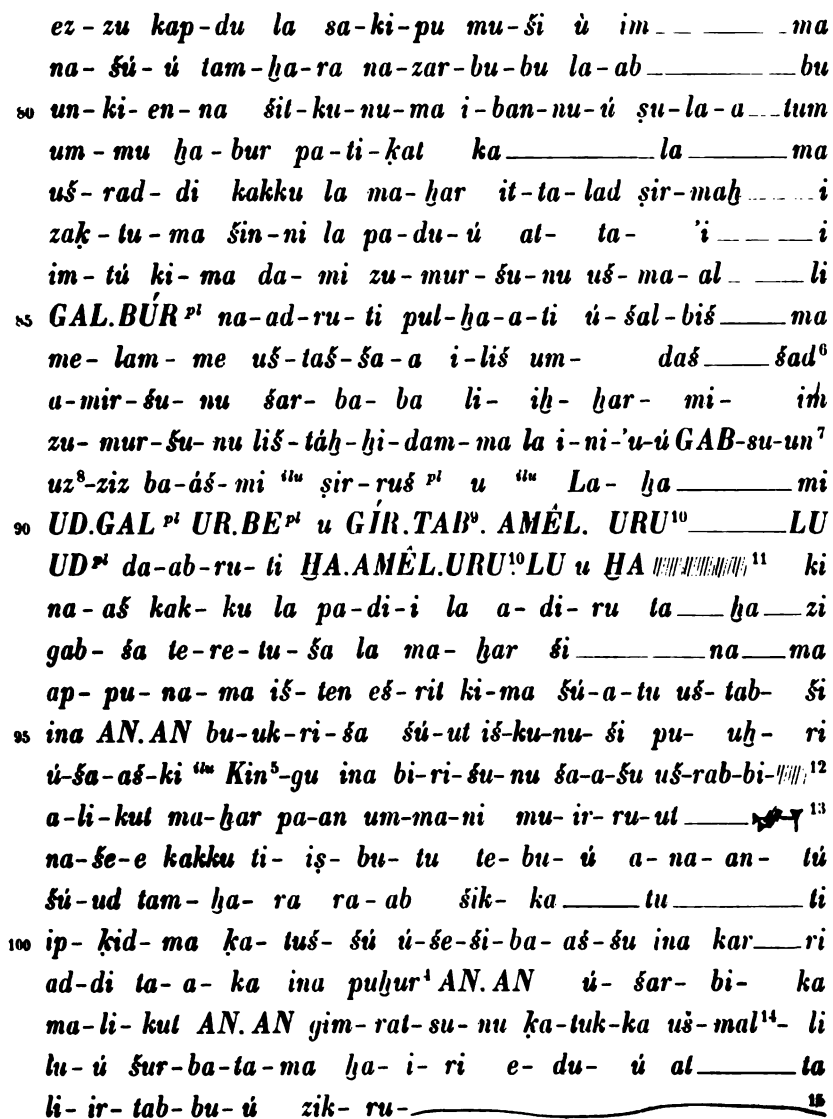 ez-zu kap-du la sa-ki-pu mu-ši ù im_ _ ___ _ma
na-šú-ú tam-ḫa-ra na-zar-bu-bu la-ab______bu
80 un-ki-en-na šit-ku-nu-ma i-ban-nu-ú ṣu-la-a___tum
um-mu ḫa-bur pa-ti-ḳat ka______la____ma
uš-rad-di kakku la ma-ḫar it-ta-lad ṣir-maḫ____i
zaḳ-tu-ma šin-ni la pa-du-ú at-ta-'i____i
im-tú ki-ma da-mi zu-mur-šu-nu uš-ma-al____li
85 GAL.BÚR pl na-ad-ru-ti pul-ḫa-a-ti ú-šal-biš____ma
me-lam-me uš-taš-ša-a i-liš um-daš____šad6
a-mir-šu-nu šar-ba-ba li-iḫ-ḫar-mi-im
zu-mur-šu-nu liš-táḫ-ḫi-dam-ma la i-ni-'u-ú GAB-su-un7
uz8-ziz ba-áš-mi ilu ṣir-ruš pl u ilu La-ḫa____mi
90 UD.GAL pl UR.BE pl u GÍR.TAB9. AMÊL. URU10____LU
UD pl da-ab-ru-ti ḪA.AMÊL.URU10.LU u ḪA 11 ki
na-aš kak-ku la pa-di-i la a-di-ru ta___ḫa___zi
gab-ša te-re-tu-ša la ma-ḫar ši______na___ma
ap-pu-na-ma iš-ten eš-rit ki-ma šú-a-tu uš-tab-ši
95 ina AN.AN bu-uk-ri-ša šú-ut iš-ku-nu-ši pu-uḫ-ri
ú-ša-aš-ki ilu Kin5-gu ina bi-ri-šu-nu ša-a-šu uš-rab-bi- 12
a-li-kut ma-ḫar pa-an um-ma-ni mu-ir-ru-ut____ 13
na-še-e kakku ti-iṣ-bu-tu te-bu-ú a-na-an-tú
šú-ud tam-ḫa-ra ra-ab šik-ka____tu____ti
100 ip-ḳid-ma ḳa-tuš-šú ú-še-ši-ba-aš-šu ina kar___ri
ad-di ta-a-ka ina puḫur4 AN.AN ú-šar-bi-ka
ma-li-kut AN.AN gim-rat-su-nu ḳa-tuk-ka uš-mal14-li
lu-ú šur-ba-ta-ma ḫa-i-ri e-du-ú at____ta
li-ir-tab-bu-ú zik-ru-____15